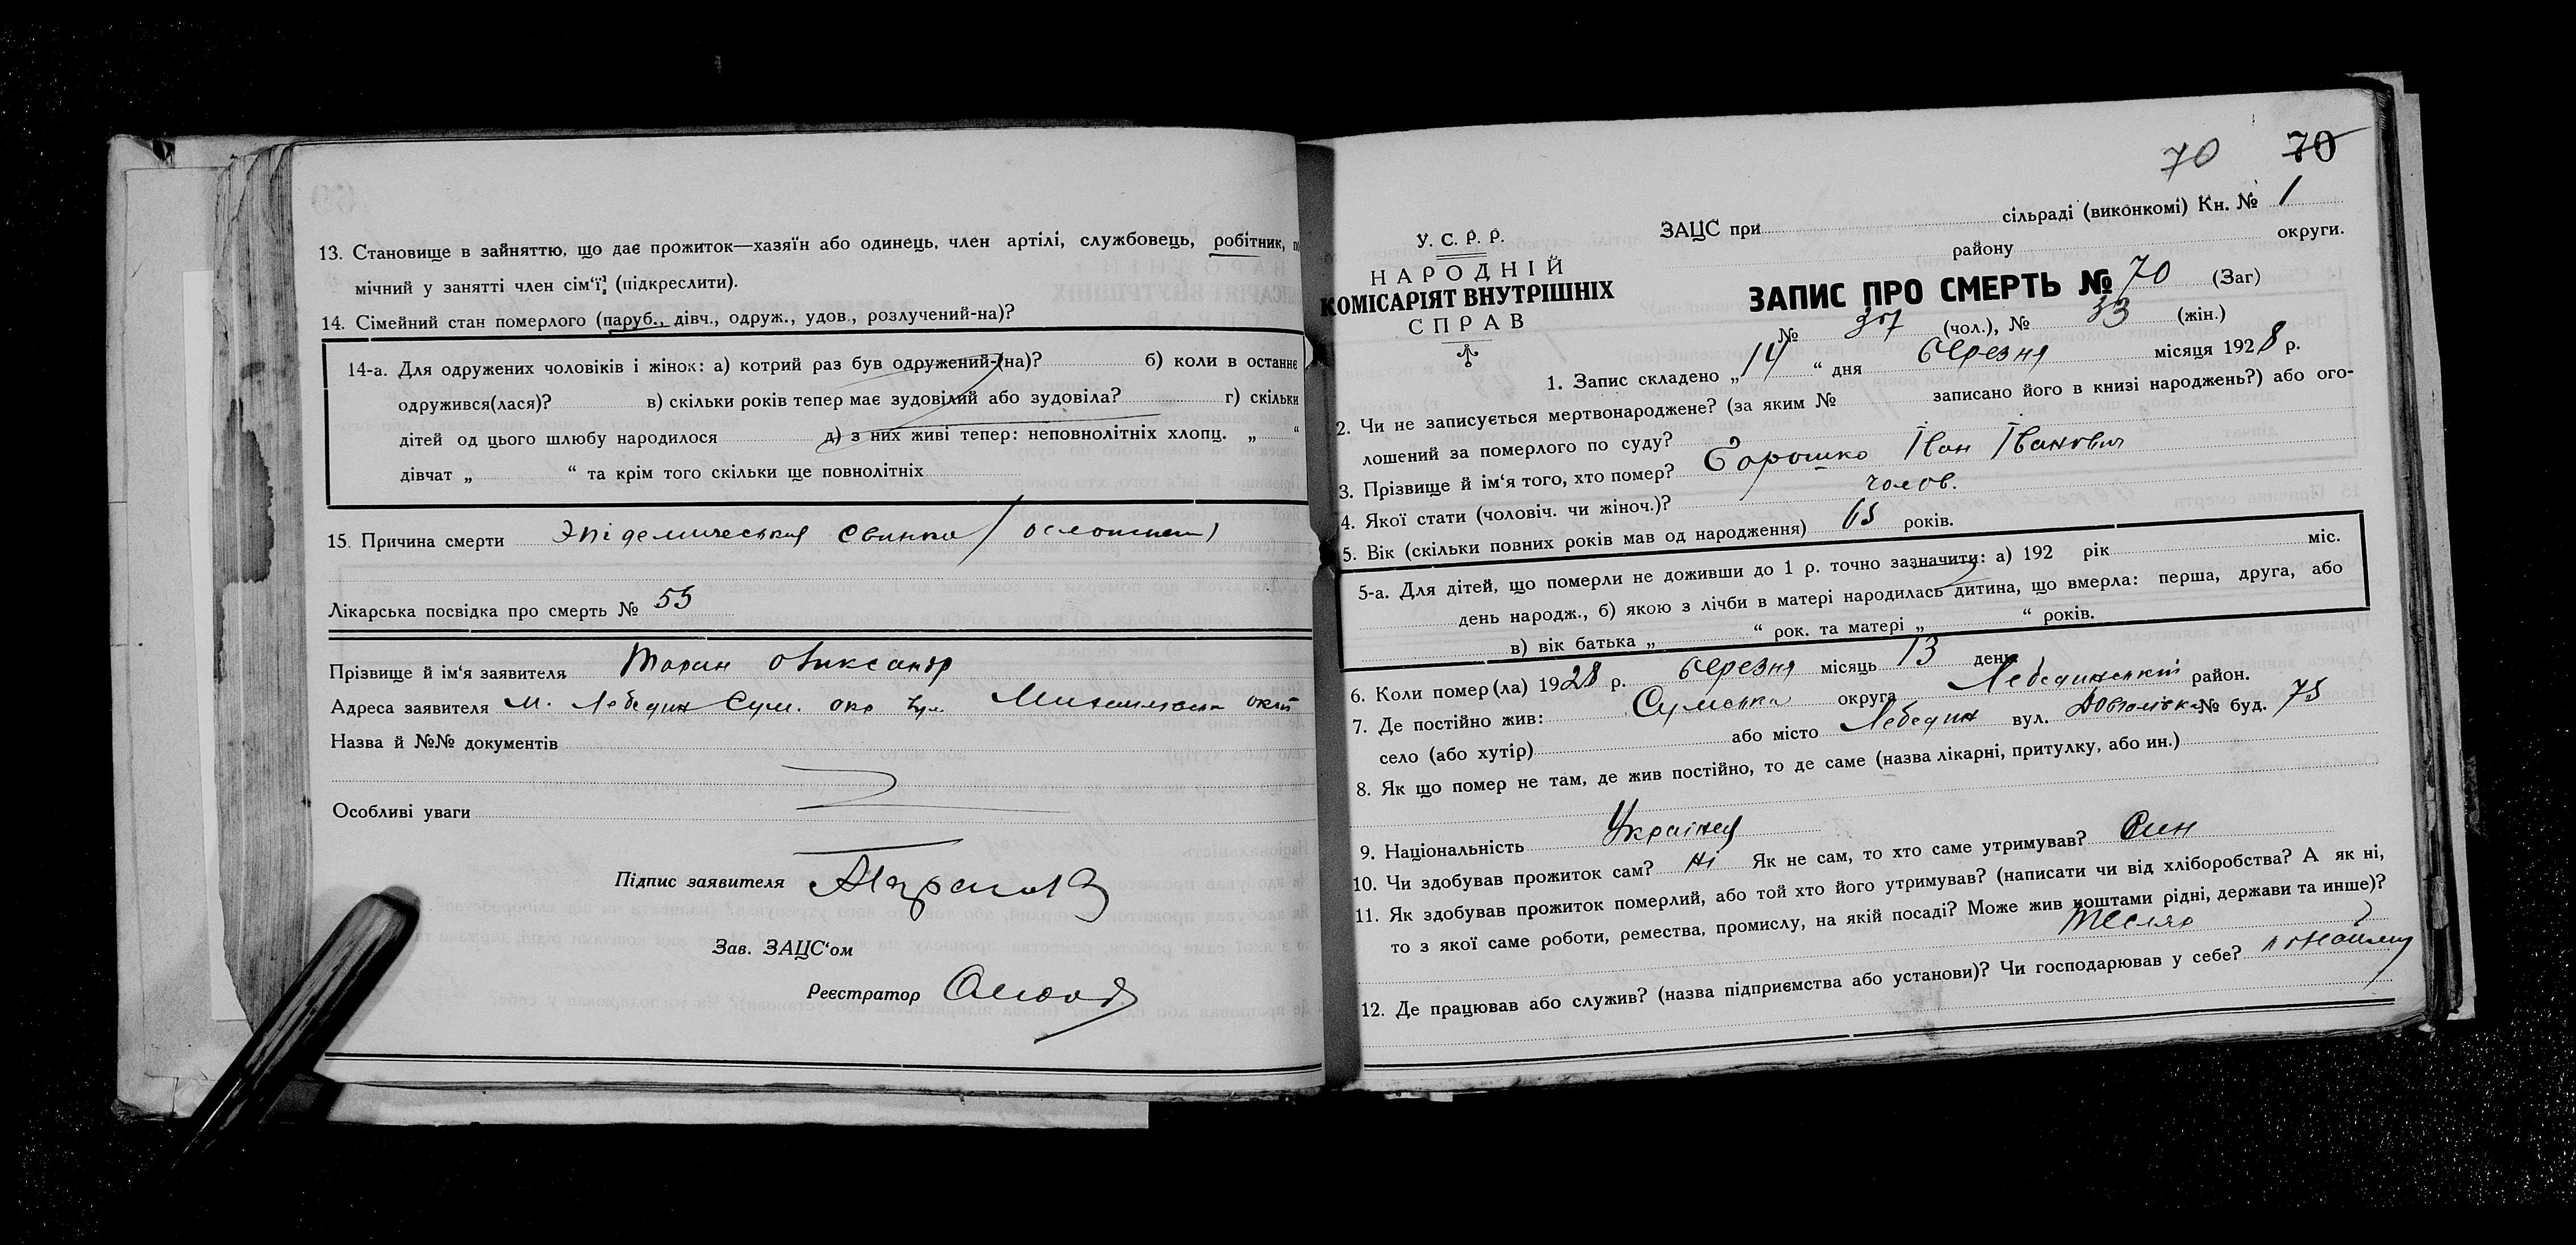 13. Становище в зайняттю, що дає прожиток—хазяїн або одинець, член артілі, службовець, робітник,
мічний у занятті член сім‘ї, (підкреслити).
14. Сімейний стан померлого (паруб., дівч., одруж., удов., розлучений-на)?
14-а. Для одружених чоловіків і жінок: а) котрий раз був одружений-(на)? б) коли в останнє
одружився(лася)? в) скільки років тепер має зудовілий або зудовіла? г) скільки
дітей од цього шлюбу народилося д) з них живі тепер: неповнолітніх хлопц. „ “
дівчат „ “ та крім того скільки ще повнолітніх
15. Причина смерти Эпідемическая свинка
Лікарська посвідка про смерть № 55
Прізвище й ім‘я заявителя Таран
Адреса заявителя м. Лебедин Сум. окр вул.
Назва й №№ документів
Особливі уваги
Підпис заявителя
Зав. ЗАЦС‘ом
Реєстратор
70 70
У. С. Р. Р.
НАРОДНІЙ
КОМІСАРІЯТ ВНУТРІШНІХ
СПРАВ
ЗАЦС при сільраді (виконкомі) Кн. № 1
району округи.
ЗАПИС ПРО СМЕРТЬ № 70 (Заг)
№ 37 (чол.), № 33 (жін.)
1. Запис складено „14“ дня березня місяця 1928 р.
2. Чи не записується мертвонароджене? (за яким № записано його в книзі народжень?) або ого-
лошений за померлого по суду?
3. Прізвище й ім‘я того, хто помер? Іван Іванович
4. Якої стати (чоловіч. чи жіноч.)? чолов.
5. Вік (скільки повних років мав од народження) 65 років.
5-а. Для дітей, що померли не доживши до 1 р. точно зазначити: а) 192 рік міс.
день народж., б) якою з лічби в матері народилась дитина, що вмерла: перша, друга, або
в) вік батька „ “ рок. та матері „ “ років.
6. Коли помер(ла) 1928 р. березня місяць 13 день
7. Де постійно жив: Сумська округа Лебединський район.
село (або хутір) або місто Лебедин вул. № буд. 75
8. Як що помер не там, де жив постійно, то де саме (назва лікарні, притулку, або ин.)
9. Національність Українец
10. Чи здобував прожиток сам? ні Як не сам, то хто саме утримував? Син
11. Як здобував прожиток померлий, або той хто його утримував? (написати чи від хліборобства? А як ні,
то з якої саме роботи, ремества, промислу, на якій посаді? Може жив коштами рідні, держави та инше)?
Тесляр
12. Де працював або служив? (назва підприємства або установи)? Чи господарював у себе? по найму